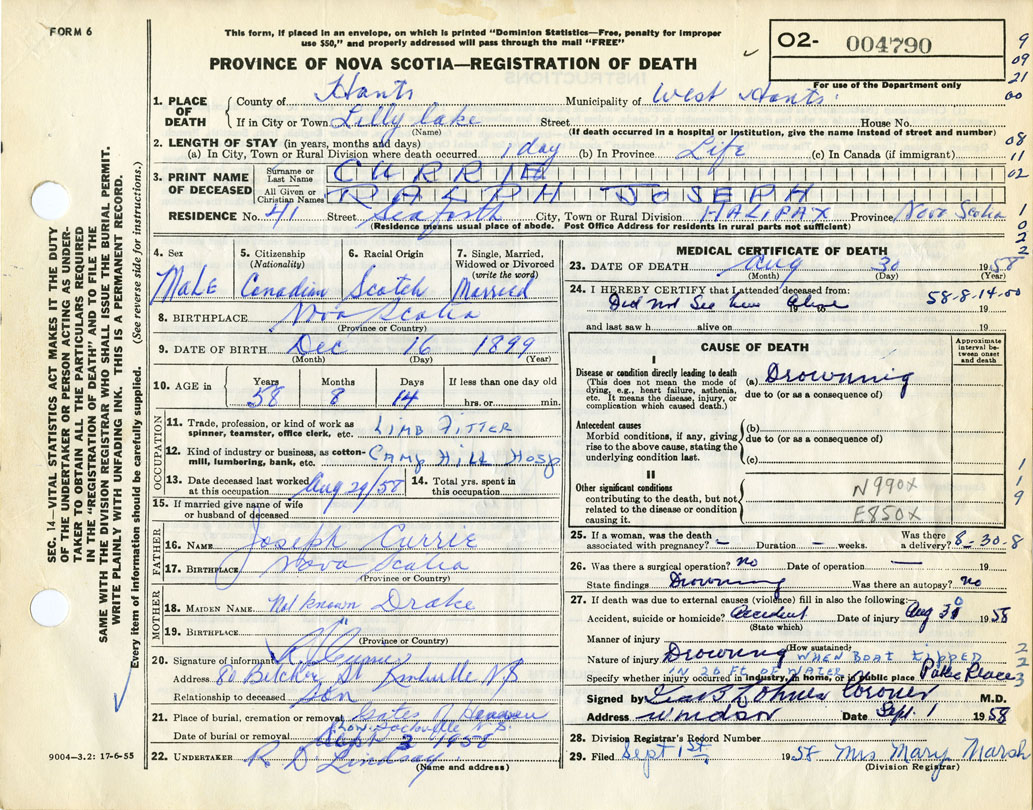 FORM 6
This form, if placed in an envelope, on which is printed "Dominion Statistics—Free, penalty for improper
use $50," and properly addressed will pass through the mail "FREE"
O2- 004790
For use of the Department only
PROVINCE OF NOVA SCOTIA—REGISTRATION OF DEATH
9
09
21
00
08
11
02
1
0
2
2
SEC. 14—VITAL STATISTICS ACT MAKES IT THE DUTY
OF THE UNDERTAKER OR PERSON ACTING AS UNDER-
TAKER TO OBTAIN ALL THE PARTICULARS REQUIRED
IN THE "REGISTRATION OF DEATH" AND TO FILE THE
SAME WITH THE DIVISION REGISTRAR WHO SHALL ISSUE THE BURIAL PERMIT.
WRITE PLAINLY WITH UNFADING INK. THIS IS A PERMANENT RECORD.
Every item of information should be carefully supplied. (See reverse side for instructions.)
1. PLACE OF DEATH
County of Hants Municipality of West Hants
If in City or Town Lilly Lake Street House No.
(Name) (If death occurred in a hospital or institution, give the name instead of street and number)
2. LENGTH OF STAY (in years, months and days)
(a) In City, Town or Rural Division where death occurred 1 day (b) In Province Life (c) In Canada (if immigrant)
3. PRINT NAME OF DECEASED
Surname or Last Name CURRIE
All Given or Christian Names RALPH JOSEPH
RESIDENCE No. 41 Street Seaforth City, Town or Rural Division HALIFAX Province Nova Scotia
(Residence means usual place of abode. Post Office Address for residents in rural parts not sufficient)
4. Sex 5. Citizenship (Nationality) 6. Racial Origin 7. Single, Married, Widowed or Divorced (write the word)
Male Canadian Scotch Married
8. BIRTHPLACE Nova Scotia
(Province or Country)
9. DATE OF BIRTH Dec 16 1899
(Month) (Day) (Year)
10. AGE in Years Months Days If less than one day old
58 8 14 hrs. or min.
OCCUPATION
11. Trade, profession, or kind of work as
spinner, teamster, office clerk, etc. LIMB FITTER
12. Kind of industry or business, as cotton-
mill, lumbering, bank, etc. CAMP HILL HOSP
13. Date deceased last worked
at this occupation Aug 29/58
14. Total yrs. spent in
this occupation
15. If married give name of wife
or husband of deceased
FATHER
16. NAME Joseph Currie
17. BIRTHPLACE Nova Scotia
(Province or Country)
MOTHER
18. MAIDEN NAME Not known Drake
19. BIRTHPLACE "
(Province or Country)
20. Signature of informant
Address 80 St Kentville NS
Relationship to deceased Son
21. Place of burial, cremation or removal Gates of Heaven
Low. Sackville N.S.
Date of burial or removal Sept 2 1958
22. UNDERTAKER R D Lindsay
(Name and address)
9004-3.2: 17-6-55
MEDICAL CERTIFICATE OF DEATH
23. DATE OF DEATH Aug 30 1958
(Month) (Day) (Year)
24. I HEREBY CERTIFY that I attended deceased from:
58-8-14-00
Did Not See him Alive
19 to 19
and last saw h alive on 19
CAUSE OF DEATH
Approximate interval between onset and death
I
Disease or condition directly leading to death
(This does not mean the mode of
dying, e.g., heart failure, asthenia,
etc. It means the disease, injury, or
complication which caused death.)
(a) Drowning
due to (or as a consequence of)
Antecedent causes
Morbid conditions, if any, giving
rise to the above cause, stating the
underlying condition last.
(b)
due to (or as a consequence of)
(c)
II
Other significant conditions
contributing to the death, but not
related to the disease or condition
causing it.
N990X
E850X
1
1
9
25. If a woman, was the death
associated with pregnancy? – Duration – weeks. Was there
a delivery? 8-30-8
26. Was there a surgical operation? No Date of operation — 19
State findings Drowning Was there an autopsy? No
27. If death was due to external causes (violence) fill in also the following:
Accident, suicide or homicide? Accident Date of injury Aug 30 1958
(State which)
Manner of injury
(How sustained)
Nature of injury Drowning WHEN BOAT TIPPED
IN 20 FT OF WATER
Specify whether injury occurred in industry, in home, or in public place Public Place
2
2
3
Signed by Coroner M.D.
Address Windsor Date Sept. 1 1958
28. Division Registrar's Record Number
29. Filed Sept 1st 1958 Mrs Mary Marsh
(Division Registrar)